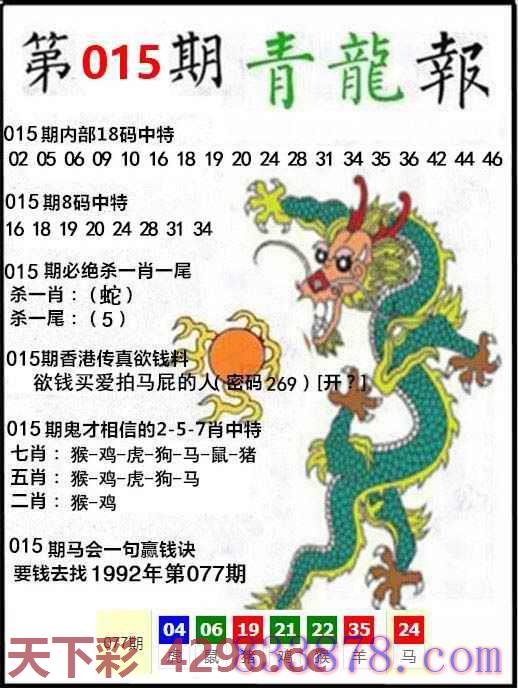 第015期青龍報
015期内部18码中特
02 05 06 09 10 16 18 19 20 24 28 31 34 35 36 42 44 46
015期8码中特
16 18 19 20 24 28 31 34
015期必绝杀一肖一尾
杀一肖：（蛇）
杀一尾：（5）
015期香港传真欲钱料
欲钱买爱拍马屁的人(密码269)[开?]
015期鬼才相信的2-5-7肖中特
七肖：猴-鸡-虎-狗-马-鼠-猪
五肖：猴-鸡-虎-狗-马
二肖：猴-鸡
015期马会一句赢钱诀
要钱去找1992年第077期
077期 04 06 19 21 22 35 24
虎 鼠 猪 鸡 猴 羊 马
天下彩 4296.cc